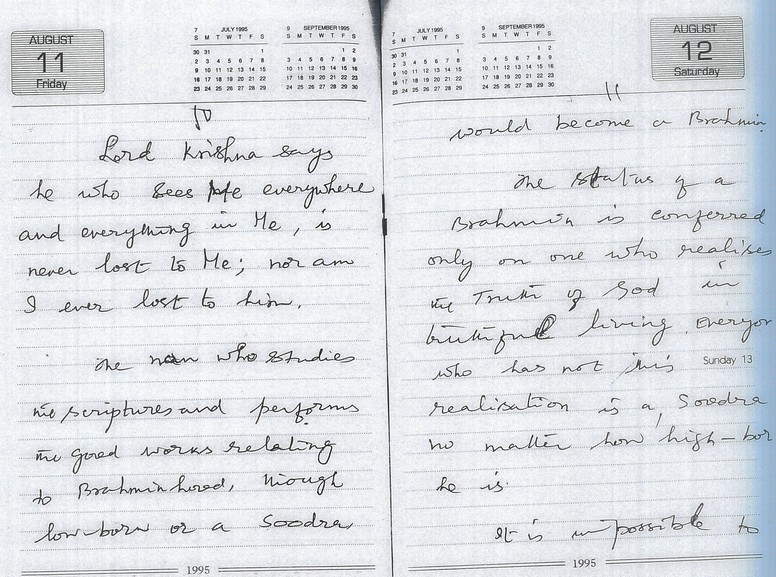 AUGUST
11
Friday
7 JULY 1995
S M T W T F S
30 31 1
2 3 4 5 6 7 8
9 10 11 12 13 14 15
16 17 18 19 20 21 22
23 24 25 26 27 28 29
9 SEPTEMBER 1995
S M T W T F S
1 2
3 4 5 6 7 8 9
10 11 12 13 14 15 16
17 18 19 20 21 22 23
24 25 26 27 28 29 30
10
Lord Krishna says
he who sees Me everywhere
and everything in Me, is
never lost to Me; nor am
I ever lost to him.
The man who studies
the scriptures and performs
the good works relating
to Brahminhood, though
low-born or a Soodra,
1995
7 JULY 1995
S M T W T F S
30 31 1
2 3 4 5 6 7 8
9 10 11 12 13 14 15
16 17 18 19 20 21 22
23 24 25 26 27 28 29
9 SEPTEMBER 1995
S M T W T F S
1 2
3 4 5 6 7 8 9
10 11 12 13 14 15 16
17 18 19 20 21 22 23
24 25 26 27 28 29 30
AUGUST
12
Saturday
11
would become a Brahmin
The status of a
Brahmin is conferred
only on one who realises
the Truth of God in
truthful living. Everyon
who has not this
Sunday 13
realisation is a Soodra
no matter how high-bor
he is.
It is impossible to
1995